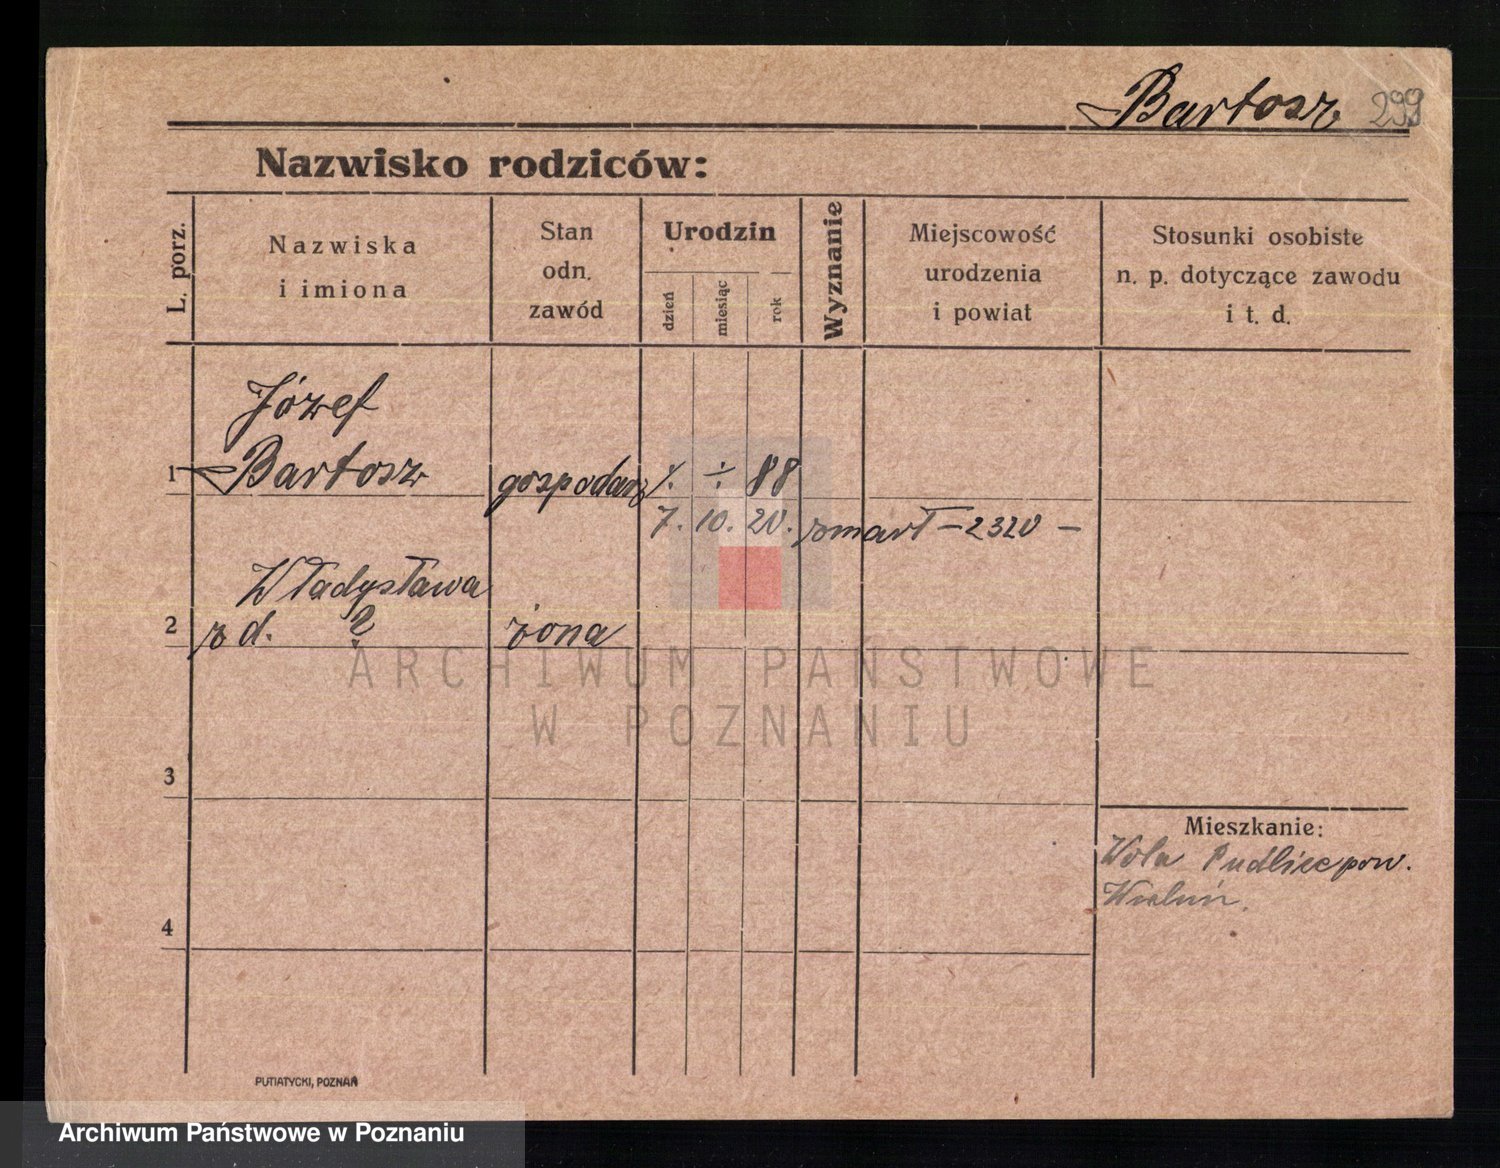 Bartosz 299
Nazwisko rodziców:
L. porz.
Nazwiska
i imiona
Stan
odn.
zawód
Urodzin
dzień
miesiąc
rok
Wyznanie
Miejscowość
urodzenia
i powiat
Stosunki osobiste
n. p. dotyczące zawodu
i t. d.
Józef
1 Bartosz gospodarz 88
7. 10. 20. zmarł - 2320 -
Władysława
2 z d. ? żona
ARCHIWUM PAŃSTWOWE
W POZNANIU
3
Mieszkanie:
Wola Pudliec pow.
Wieluń.
4
PUTIATYCKI, POZNAŃ
Archiwum Państwowe w Poznaniu